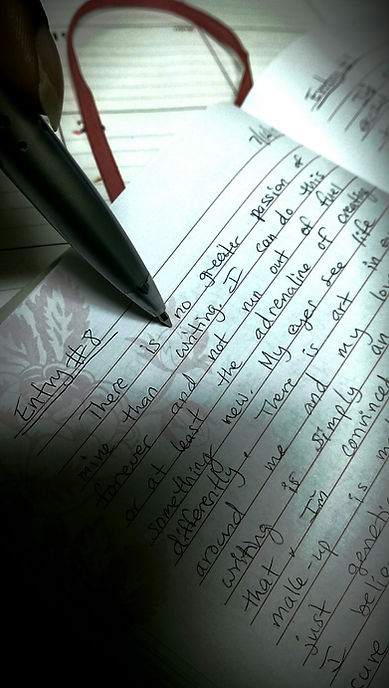 Entry #8
There is no greater passion of
mine than writing. I can do this
forever and not run out of fuel
or at least the adrenaline of creating
something new. My eyes see life
differently. There is art in
around me and my lo
writing is simply an
that. I'm convinced
make-up is m
just genetic
I believe
cure